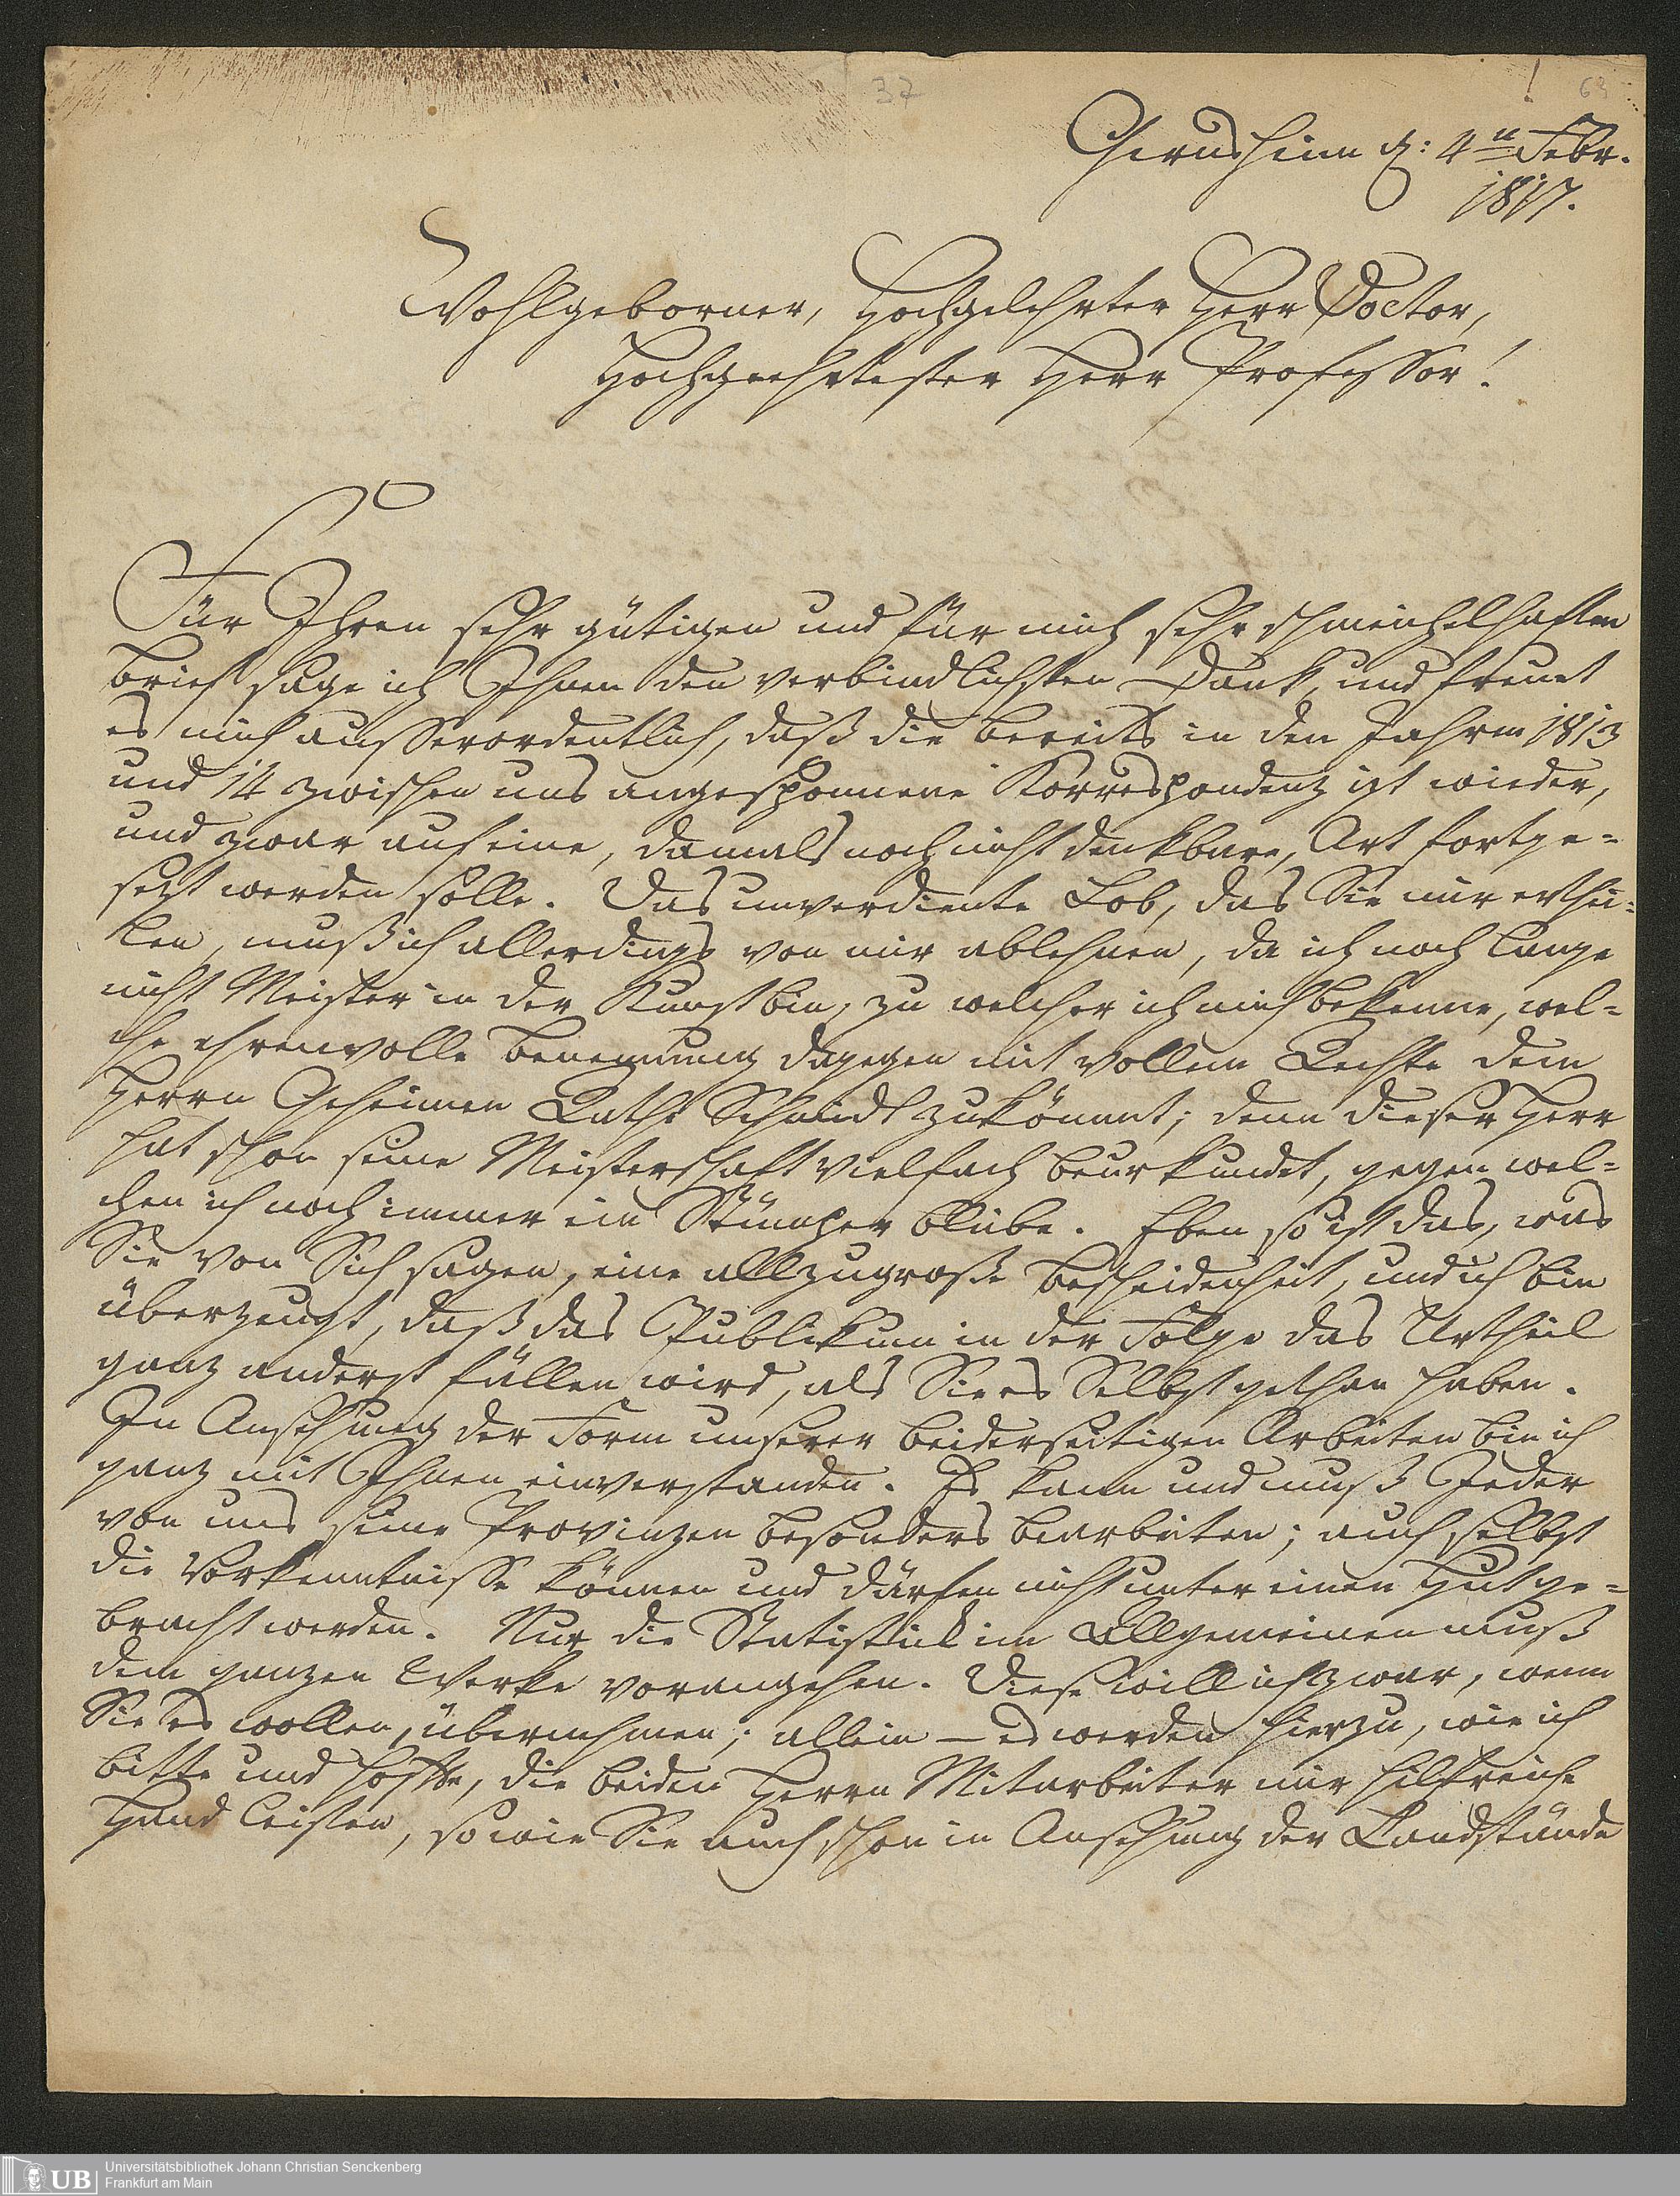 37
63
Gernsheim d: 4n Febr.
1817.
Wohlgeborner, Hochgelehrter Herr Doctor,
Hochgeehrtester Herr Professor!
Für Ihren sehr gütigen und für mich sehr schmeichelhaften
Brief sage ich Ihnen den verbindlichsten Dank, und freuet
es mich ausserordentlich, daß die bereits in den Jahren 1813
und 14 zwischen uns angesponnene Korrespondenz izt wieder,
und zwar auf eine, damals noch nicht denkbare, Art fortge-
sezt werden solle. Das unverdiente Lob, das Sie mir erthei-
len, muß ich allerdings von mir ablehnen, da ich noch lange
nicht Meister in der Kunst bin, zu welcher ich mich bekenne, wel-
che ehrenvolle Benennung dagegen mit vollem Rechte dem
Herrn Geheimen Rathe Schmidt zukömmt; denn dieser Herr
hat schon seine Meisterschaft vielfach beurkundet, gegen wel-
chen ich noch immer ein Stümper bleibe. Eben so ist das, was
Sie von Sich sagen, eine allzugroße Bescheidenheit, und ich bin
überzeugt, daß das Publikum in der Folge das Urtheil
ganz anderst fällen wird, als Sie es Selbst gethan haben.
In Ansehung der Form unserer beiderseitigen Arbeiten bin ich
ganz mit Ihnen einverstanden. Es kann und muß Jeder
von uns seine Provinzen besonders bearbeiten; auch selbst
die Vorkenntnisse können und därfen nicht unter einen Hut ge-
bracht werden. Nur die Statistick im Allgemeinen muß
dem ganzen Werke vorangehen. Diese will ich zwar, wenn
Sie es wollen, übernehmen; allein – es werden hierzu, wie ich
bitte und hoffe, die beiden Herrn Mitarbeiter mir hilfreiche
Hand leisten, so wie Sie auch schon in Ansehung der Landstände
UB
Universitätsbibliothek Johann Christian Senckenberg
Frankfurt am Main